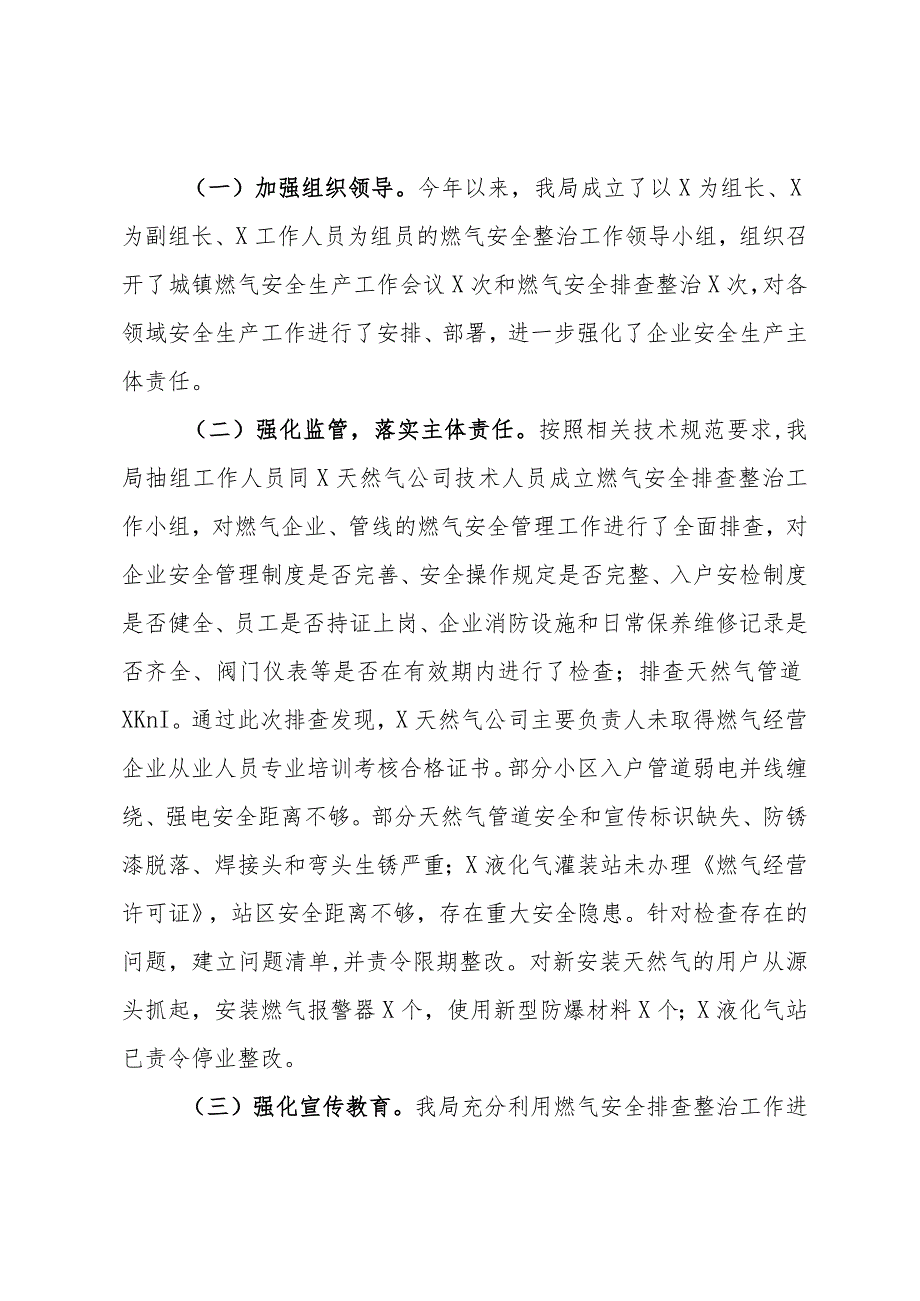 （一）加强组织领导。今年以来，我局成立了以X为组长、X
为副组长、X工作人员为组员的燃气安全整治工作领导小组，组织召
开了城镇燃气安全生产工作会议X次和燃气安全排查整治X次，对各
领域安全生产工作进行了安排、部署，进一步强化了企业安全生产主
体责任。
（二）强化监管，落实主体责任。按照相关技术规范要求,我
局抽组工作人员同X天然气公司技术人员成立燃气安全排查整治工
作小组，对燃气企业、管线的燃气安全管理工作进行了全面排查，对
企业安全管理制度是否完善、安全操作规定是否完整、入户安检制度
是否健全、员工是否持证上岗、企业消防设施和日常保养维修记录是
否齐全、阀门仪表等是否在有效期内进行了检查；排查天然气管道
XKnI。通过此次排查发现，X天然气公司主要负责人未取得燃气经营
企业从业人员专业培训考核合格证书。部分小区入户管道弱电并线缠
绕、强电安全距离不够。部分天然气管道安全和宣传标识缺失、防锈
漆脱落、焊接头和弯头生锈严重；X液化气灌装站未办理《燃气经营
许可证》，站区安全距离不够，存在重大安全隐患。针对检查存在的
问题，建立问题清单,并责令限期整改。对新安装天然气的用户从源
头抓起，安装燃气报警器X个，使用新型防爆材料X个；X液化气站
已责令停业整改。
（三）强化宣传教育。我局充分利用燃气安全排查整治工作进